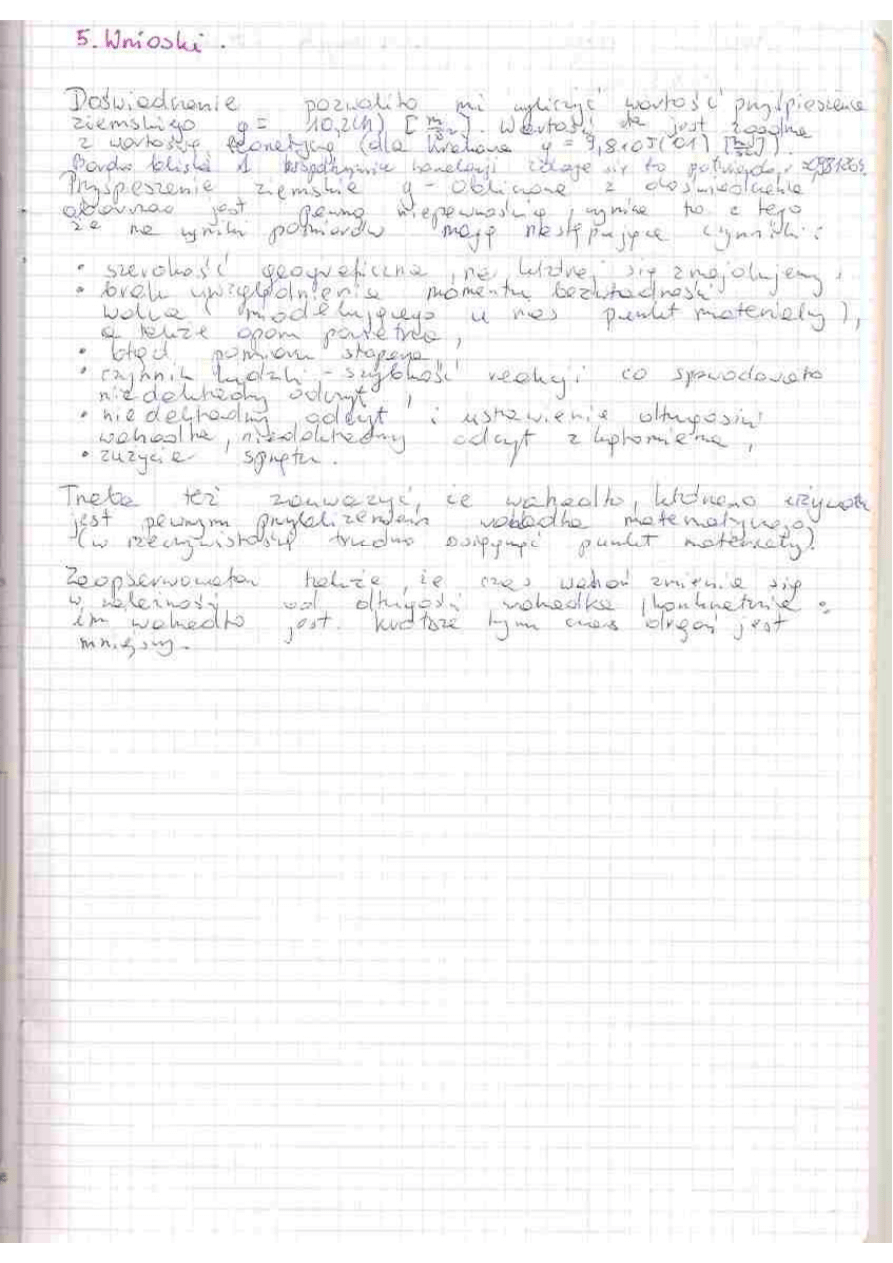 5. Wnioski.
Doświadczenie pozwoliło mi wyliczyć wartość przyśpieszenia
ziemskiego g = 10,2(11) [m/s²]. Wartość ta jest zgodna
z wartością teoretyczną (dla Krakowa g = 9,8105(01) [m/s²]).
Bardzo bliski 1 współczynnik korelacji zdaje się to potwierdzać
Przyspieszenie ziemskie g - obliczone z doświadczenia
jest pewną niepewnością, wynika to z tego
że na wyniki pomiarów mają następujące czynniki:
• szerokość geograficzna, na której się znajdujemy,
• brak uwzględnienia momentu bezwładności
walca (modelującego u nas punkt materialny),
a także opory powietrza,
• błąd pomiaru stopera,
• czynnik ludzki - szybkość reakcji co spowodowało
niedokładny odczyt,
• niedokładny odczyt i ustawienie długości
wahadła, niedokładny odczyt z kątomierza,
• zużycie sprzętu.
Trzeba też zauważyć, że wahadło, którego używałam
jest pewnym przybliżeniem wahadła matematycznego
(w rzeczywistości trudno osiągnąć punkt materialny).
Zaobserwowałam także, że czas wahań zmienia się
w zależności od długości wahadła, konkretnie:
im wahadło jest krótsze tym czas drgań jest
mniejszy.